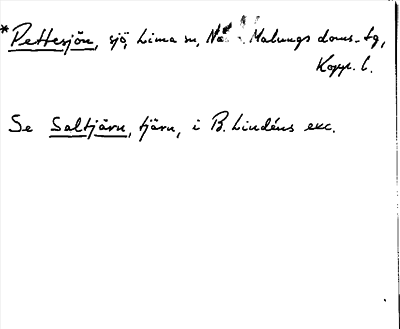 *Pettesjön, sjö, Lima sn, Malungs doms.-tg,
Kopp. l.
Se Saltjärn, tjärn, i B. Lindéns exc.